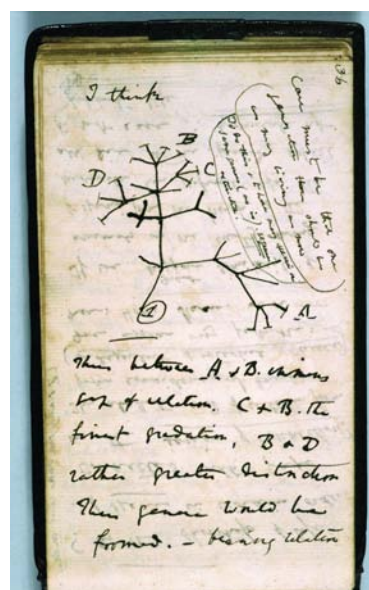 36
I think
Case must be that one
generation then should be
as many living as now
To do this & to have many species in
same genus (as is) requires
extinction
B
D
C
1
A
Thus between A & B. immens
gap of relation. C & B. the
finest gradation, B & D
rather greater distinction
Thus genera would be
formed. — bearing relation